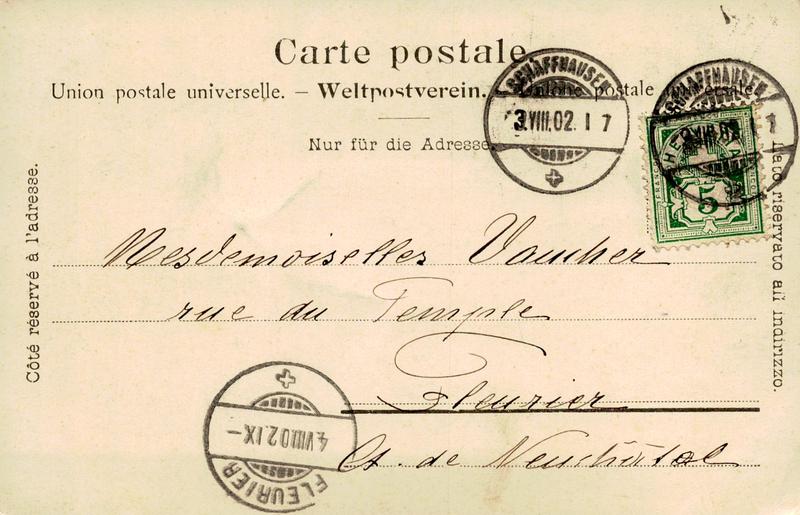 Carte postale
Union postale universelle. – Weltpostverein. – Unione postale universale
Nur für die Adresse.
Côté réservé à l'adresse.
Lato riservato all indirizzo.
SCHAFFHAUSEN
3.VIII.02. 1 7
SCHAFFHAUSEN
5
Mesdemoiselles Vaucher
rue du Temple
Fleurier
Ct. de Neuchâtel
4.VIII.02.IX–
FLEURIER